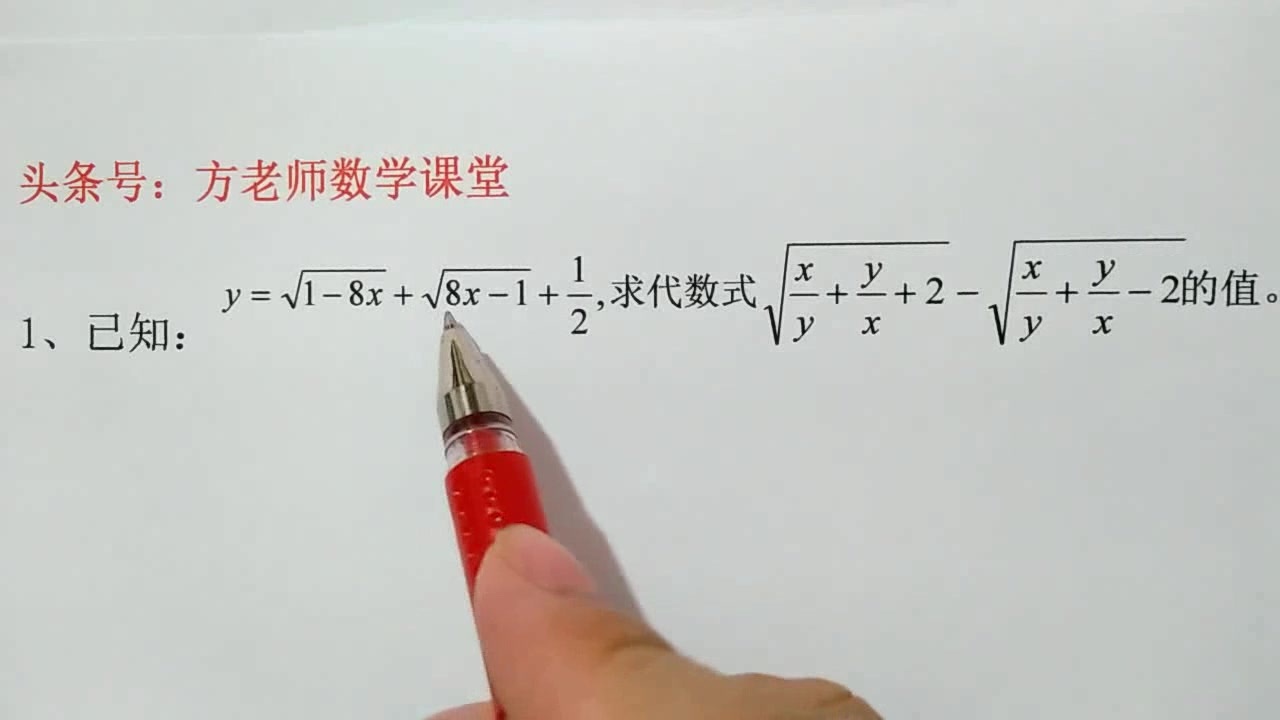 头条号：方老师数学课堂
1、已知： y = √(1−8x) + √(8x−1) + 1/2 ,求代数式 √(x/y + y/x + 2) − √(x/y + y/x − 2) 的值。